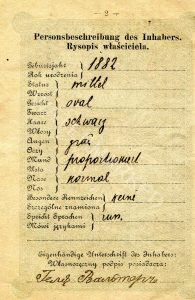 — 2 —
Personsbeschreibung des Inhabers.
Rysopis właściciela.
Geburtsjahr 1882
Rok urodzenia
Status mittel
Wzrost
Gesicht oval
Twarz
Haare schwarz
Włosy
Augen grau
Oczy
Mund proportioniert
Usta
Nase normal
Nos
Besondere Kennzeichen keine
Szczególne znamiona
Spricht Sprachen russ.
Mówi językami
Eigenhändige Unterschrift des Inhabers:
Własnoręczny podpis posiadacza: